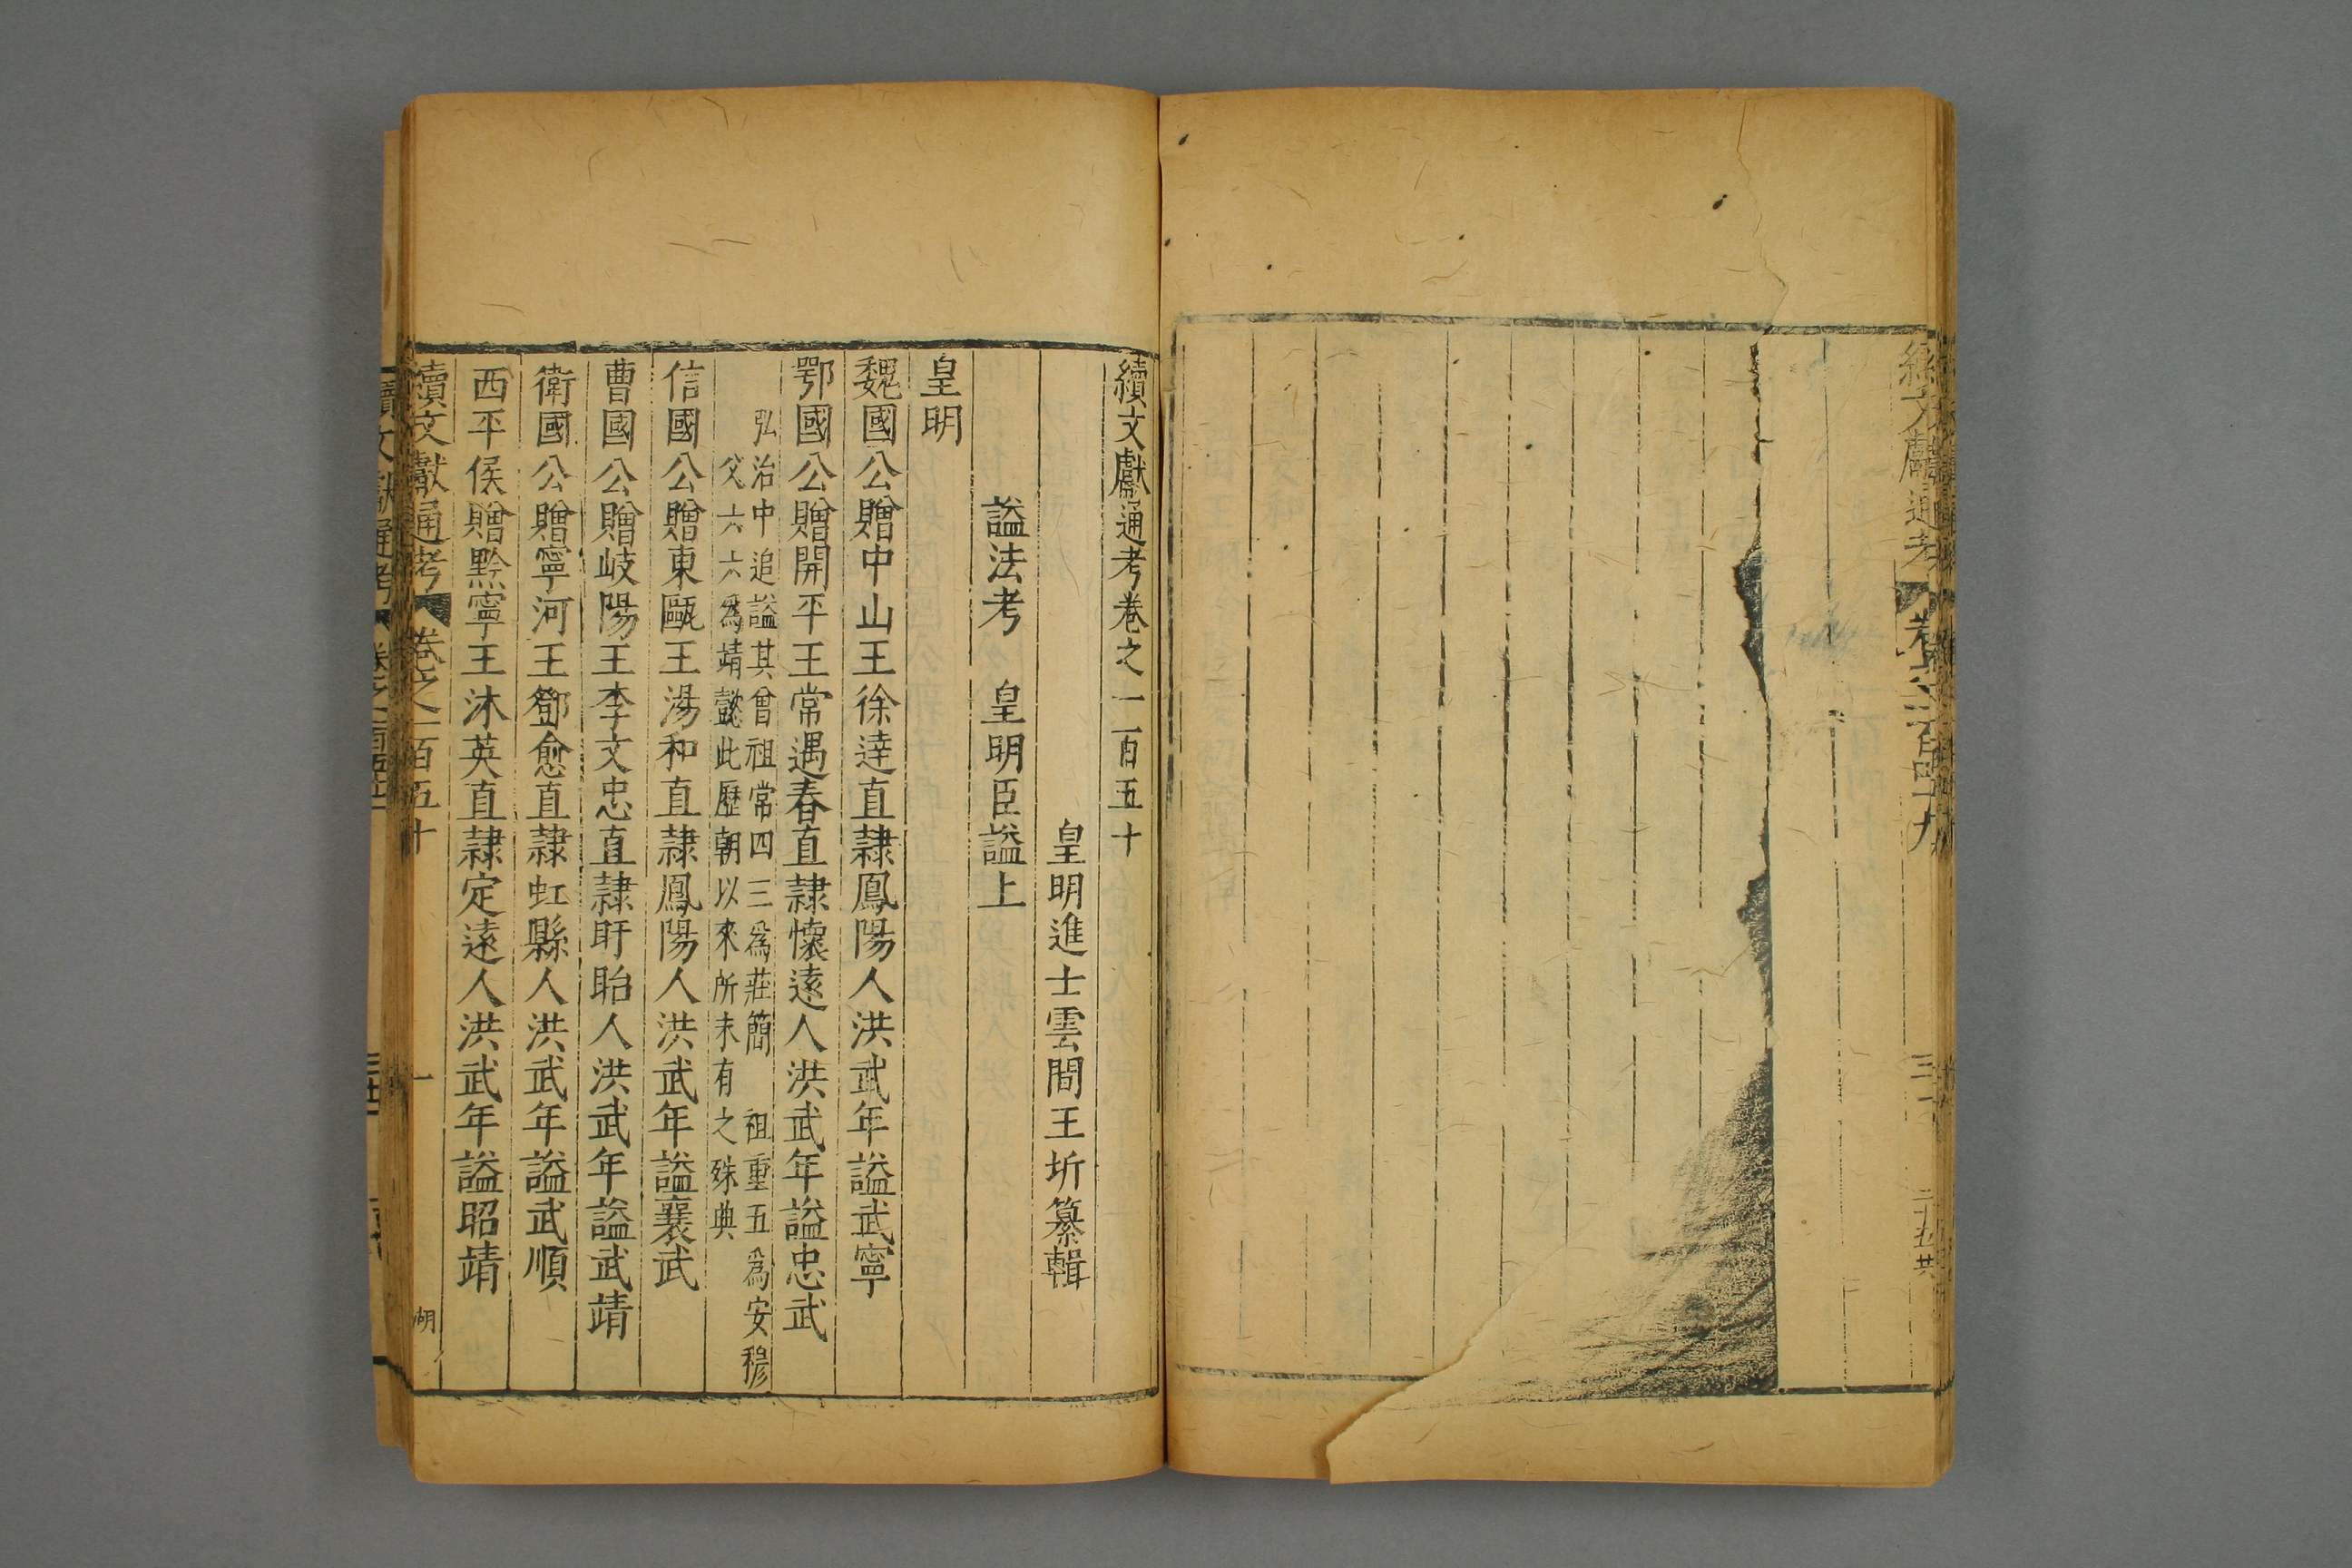 續文獻通考
續文獻通考卷之一百五十
皇明進士雲間王圻纂輯
謚法考　皇明臣謚上
皇明
魏國公贈中山王徐達直隸鳳陽人洪武年謚武寧
鄂國公贈開平王常遇春直隸懷遠人洪武年謚忠武
弘治中追謚其曾祖常四三爲莊簡　祖重五爲安穆
父六六爲靖懿此歷朝以來所未有之殊典
信國公贈東甌王湯和直隸鳳陽人洪武年謚襄武
曹國公贈岐陽王李文忠直隸盱眙人洪武年謚武靖
衛國公贈寧河王鄧愈直隸虹縣人洪武年謚武順
西平侯贈黔寧王沐英直隸定遠人洪武年謚昭靖
續文獻通考　卷之一百五十　一